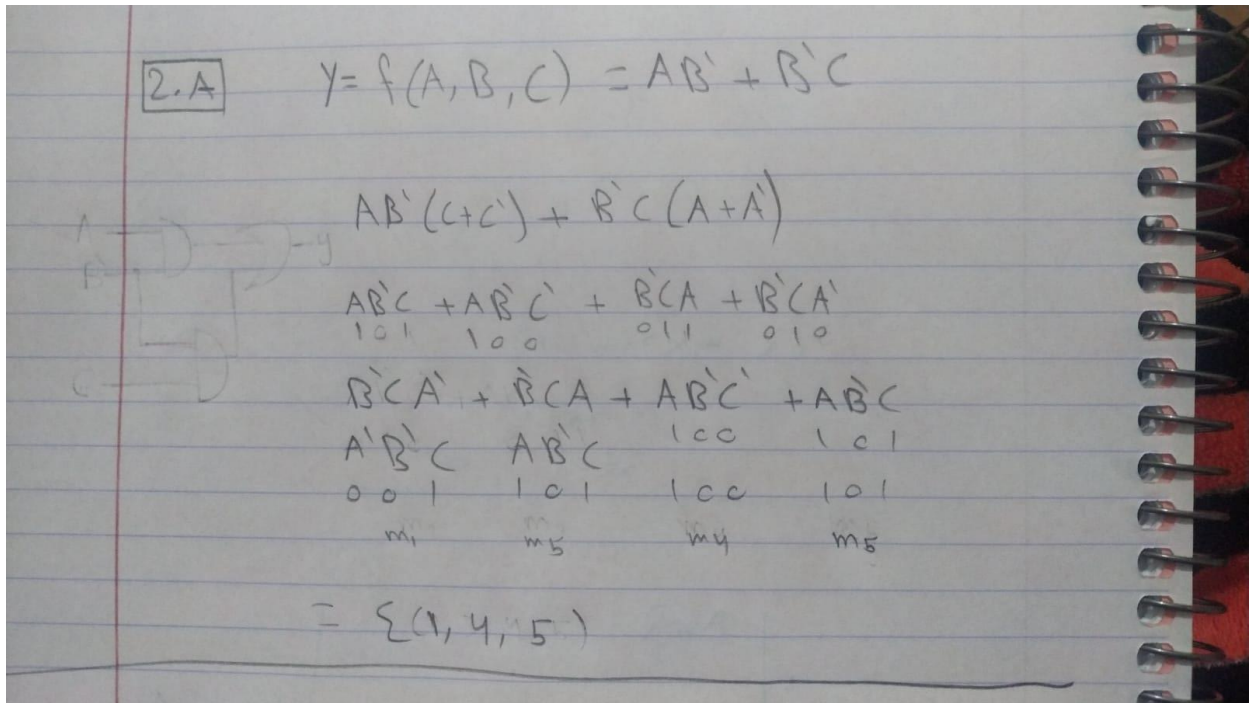 2.A Y= f(A, B, C) = AB` + B`C
AB`(C+C`) + B`C(A+A`)
AB`C + AB`C` + B`CA + B`CA`
101 100 011 010
B`CA` + B`CA + AB`C` + AB`C
A`B`C AB`C 100 101
001 101 100 101
m1 m5 m4 m5
= Σ(1, 4, 5)
A
B`
C
y